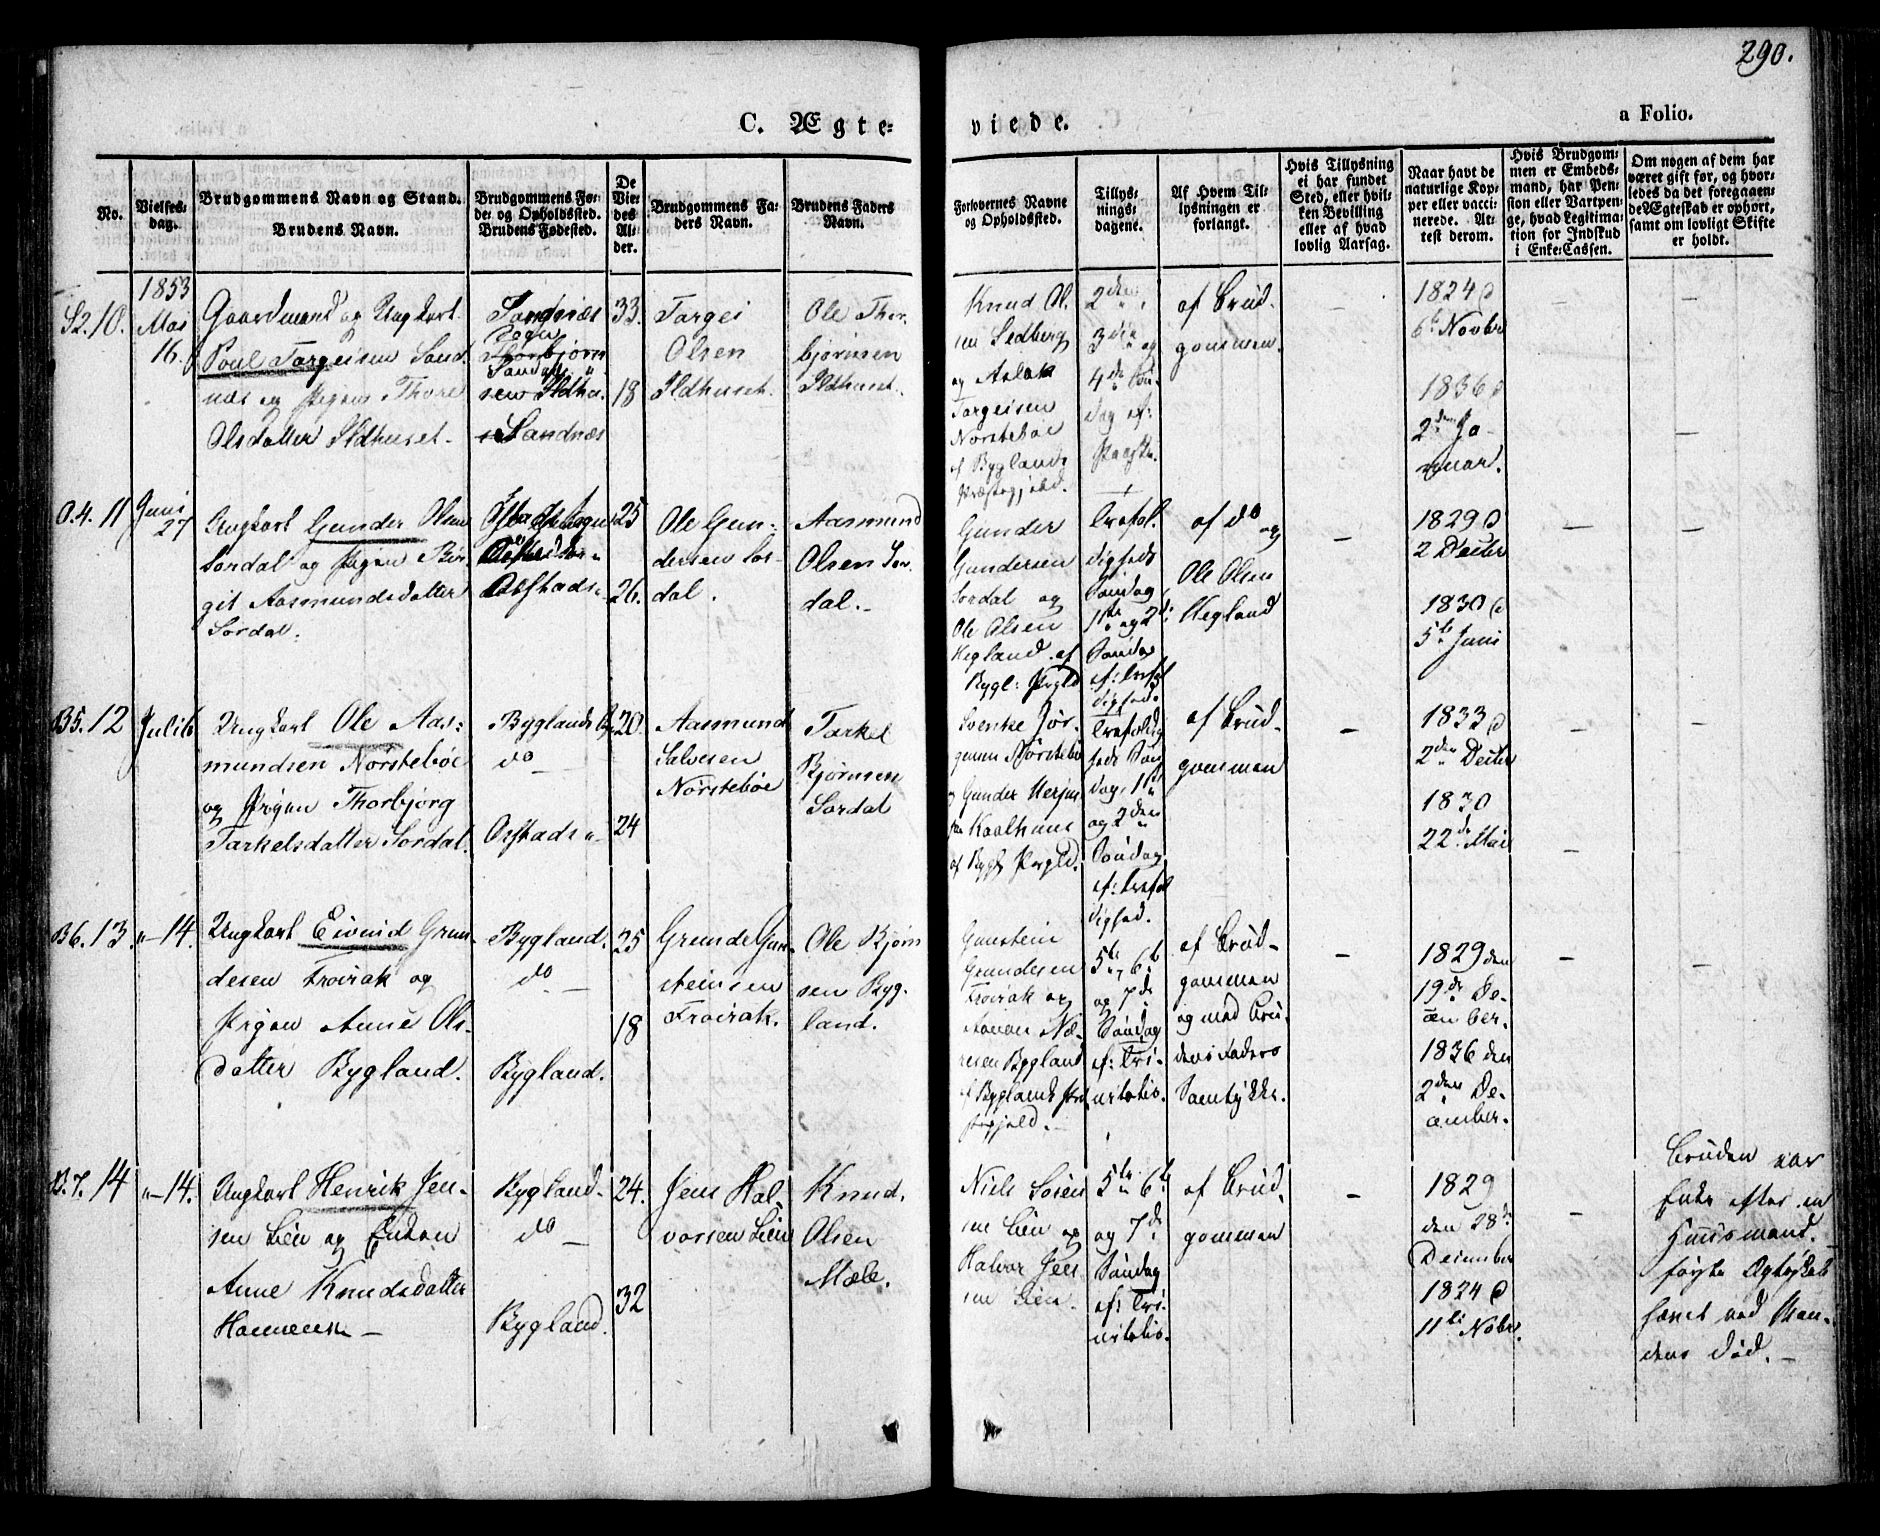 290.
C. Ægte-
viede.
a Folio.
No.
Vielses-
dag.
Brudgommens Navn og Stand.
Brudens Navn.
Brudgommens Fø-
de- og Opholdssted.
Brudens Fødested.
De
Vie-
des
Al-
der.
Brudgommens Fa-
ders Navn.
Brudens Faders
Navn.
Forlovernes Navne
og Opholdssted.
Tillys-
nings-
dagene.
Af Hvem Til-
lysningen er
forlangt.
Hvis Tillysning
ei har fundet
Sted, eller hvil-
ken Bevilling
eller af hvad
lovlig Aarsag.
Naar havt de
naturlige Kop-
per eller vacci-
nerede. At-
test derom.
Hvis Brudgom-
men er Embeds-
mand, har Pen-
sion eller Vartpen-
ge, hvad Legitima-
tion for Indskud
i Enke-Cassen.
Om nogen af dem har
været gift før, og hvor-
ledes da det foregaaen-
de Ægteskab er ophørt,
samt om lovligt Skifte
er holdt.
S2. 10.
1853
Mai
16.
Gaardmand og Ungkarl
Poul Targeisen Sand-
næs og Pigen Thore
Olsdatter Ildhuset.
Sandnæs
Sogn
Sandnæs
33.
18
Targei
Olsen
Ildhuset.
Ole Thor-
bjørnsen
Ildhuset.
Knud Ol-
sen Sedberg
og Aslak
Targeisen
Norstebøe
af Byglands
Præstegjeld.
2den,
3die og
4de Søn-
dag ef:
Paaske.
af Brud-
gommen.
1824 d
6te Novbr
1836 d
2den Ja-
nuar.
O.4. 11
Juni
27
Ungkarl Gunder Olsen
Sordal og Pigen Bir-
git Aasmundsdatter
Sordal.
Ostads"
25
26.
Ole Gun-
dersen Sor-
dal.
Aasmund
Olsen Sor-
dal.
Gunder
Gundersen
Sordal og
Ole Olsen
Hegland af
Bygl: Prgld
Trefol-
digheds
Søndag,
1ste og 2de
Søndag
ef: Trefol
dighed.
af do og
Ole Olsen
Hegland
1829 d
2 Decbr
1830 d
5te Juni
B5. 12
Juli 6
Ungkarl Ole Aas-
mundsen Norstebøe
og Pigen Thorbjørg
Tarkelsdatter Sordal.
Byglands
do
Ostads"
20
24
Aasmund
Salvesen
Norstebøe
Tarkel
Bjørnsen
Sordal
Svenke Jør-
gensen Norstebøe
Gunder Herjus
Kaalhuus
af Bygl. Prgld.
Trefoldig-
heds Søn
dag, 1ste
og 2den
Søndag
ef: Trefol
dighed.
af Brud-
gommen
1833 d
2den Decbr
1830
22de Mai
B6. 13
"-14.
Ungkarl Eivind Grun-
desen Froirak og
Pigen Anne Ols-
datter Bygland.
Bygland.
do
Bygland.
25
18
Grunde Gun-
steinsen
Froirak.
Ole Bjørn
sen Byg-
land.
Gunstein
Grundesen
Froirak og
Bygland
af Byglands Præ-
stegjeld.
5te, 6te
og 7de
Søndag
ef: Tri-
nitatis.
af Brud-
gommen
og med Bru-
dens Faders
Samtykke.
1829 den
19de De-
cember.
1836 den
2den De-
cember.
B.7. 14
"-14.
Ungkarl Henrik Jen-
sen Lien og Enken
Anne Knudsdatter
Bygland
do
Bygland.
24.
32
Jens Hal
vorsen Lien
Knud
Olsen
Mæle.
Niels Soren
sen Lien og
Halvor Jen
sen Lien.
5te 6te
og 7de
Søndag
ef: Tri-
nitatis.
af Brud-
gommen
1829
den 28de
December
1824 d
11te Nobr.
Bruden var
Enke efter en
Huusmand.
første Ægteskab
hævet ved Man-
dens Død.